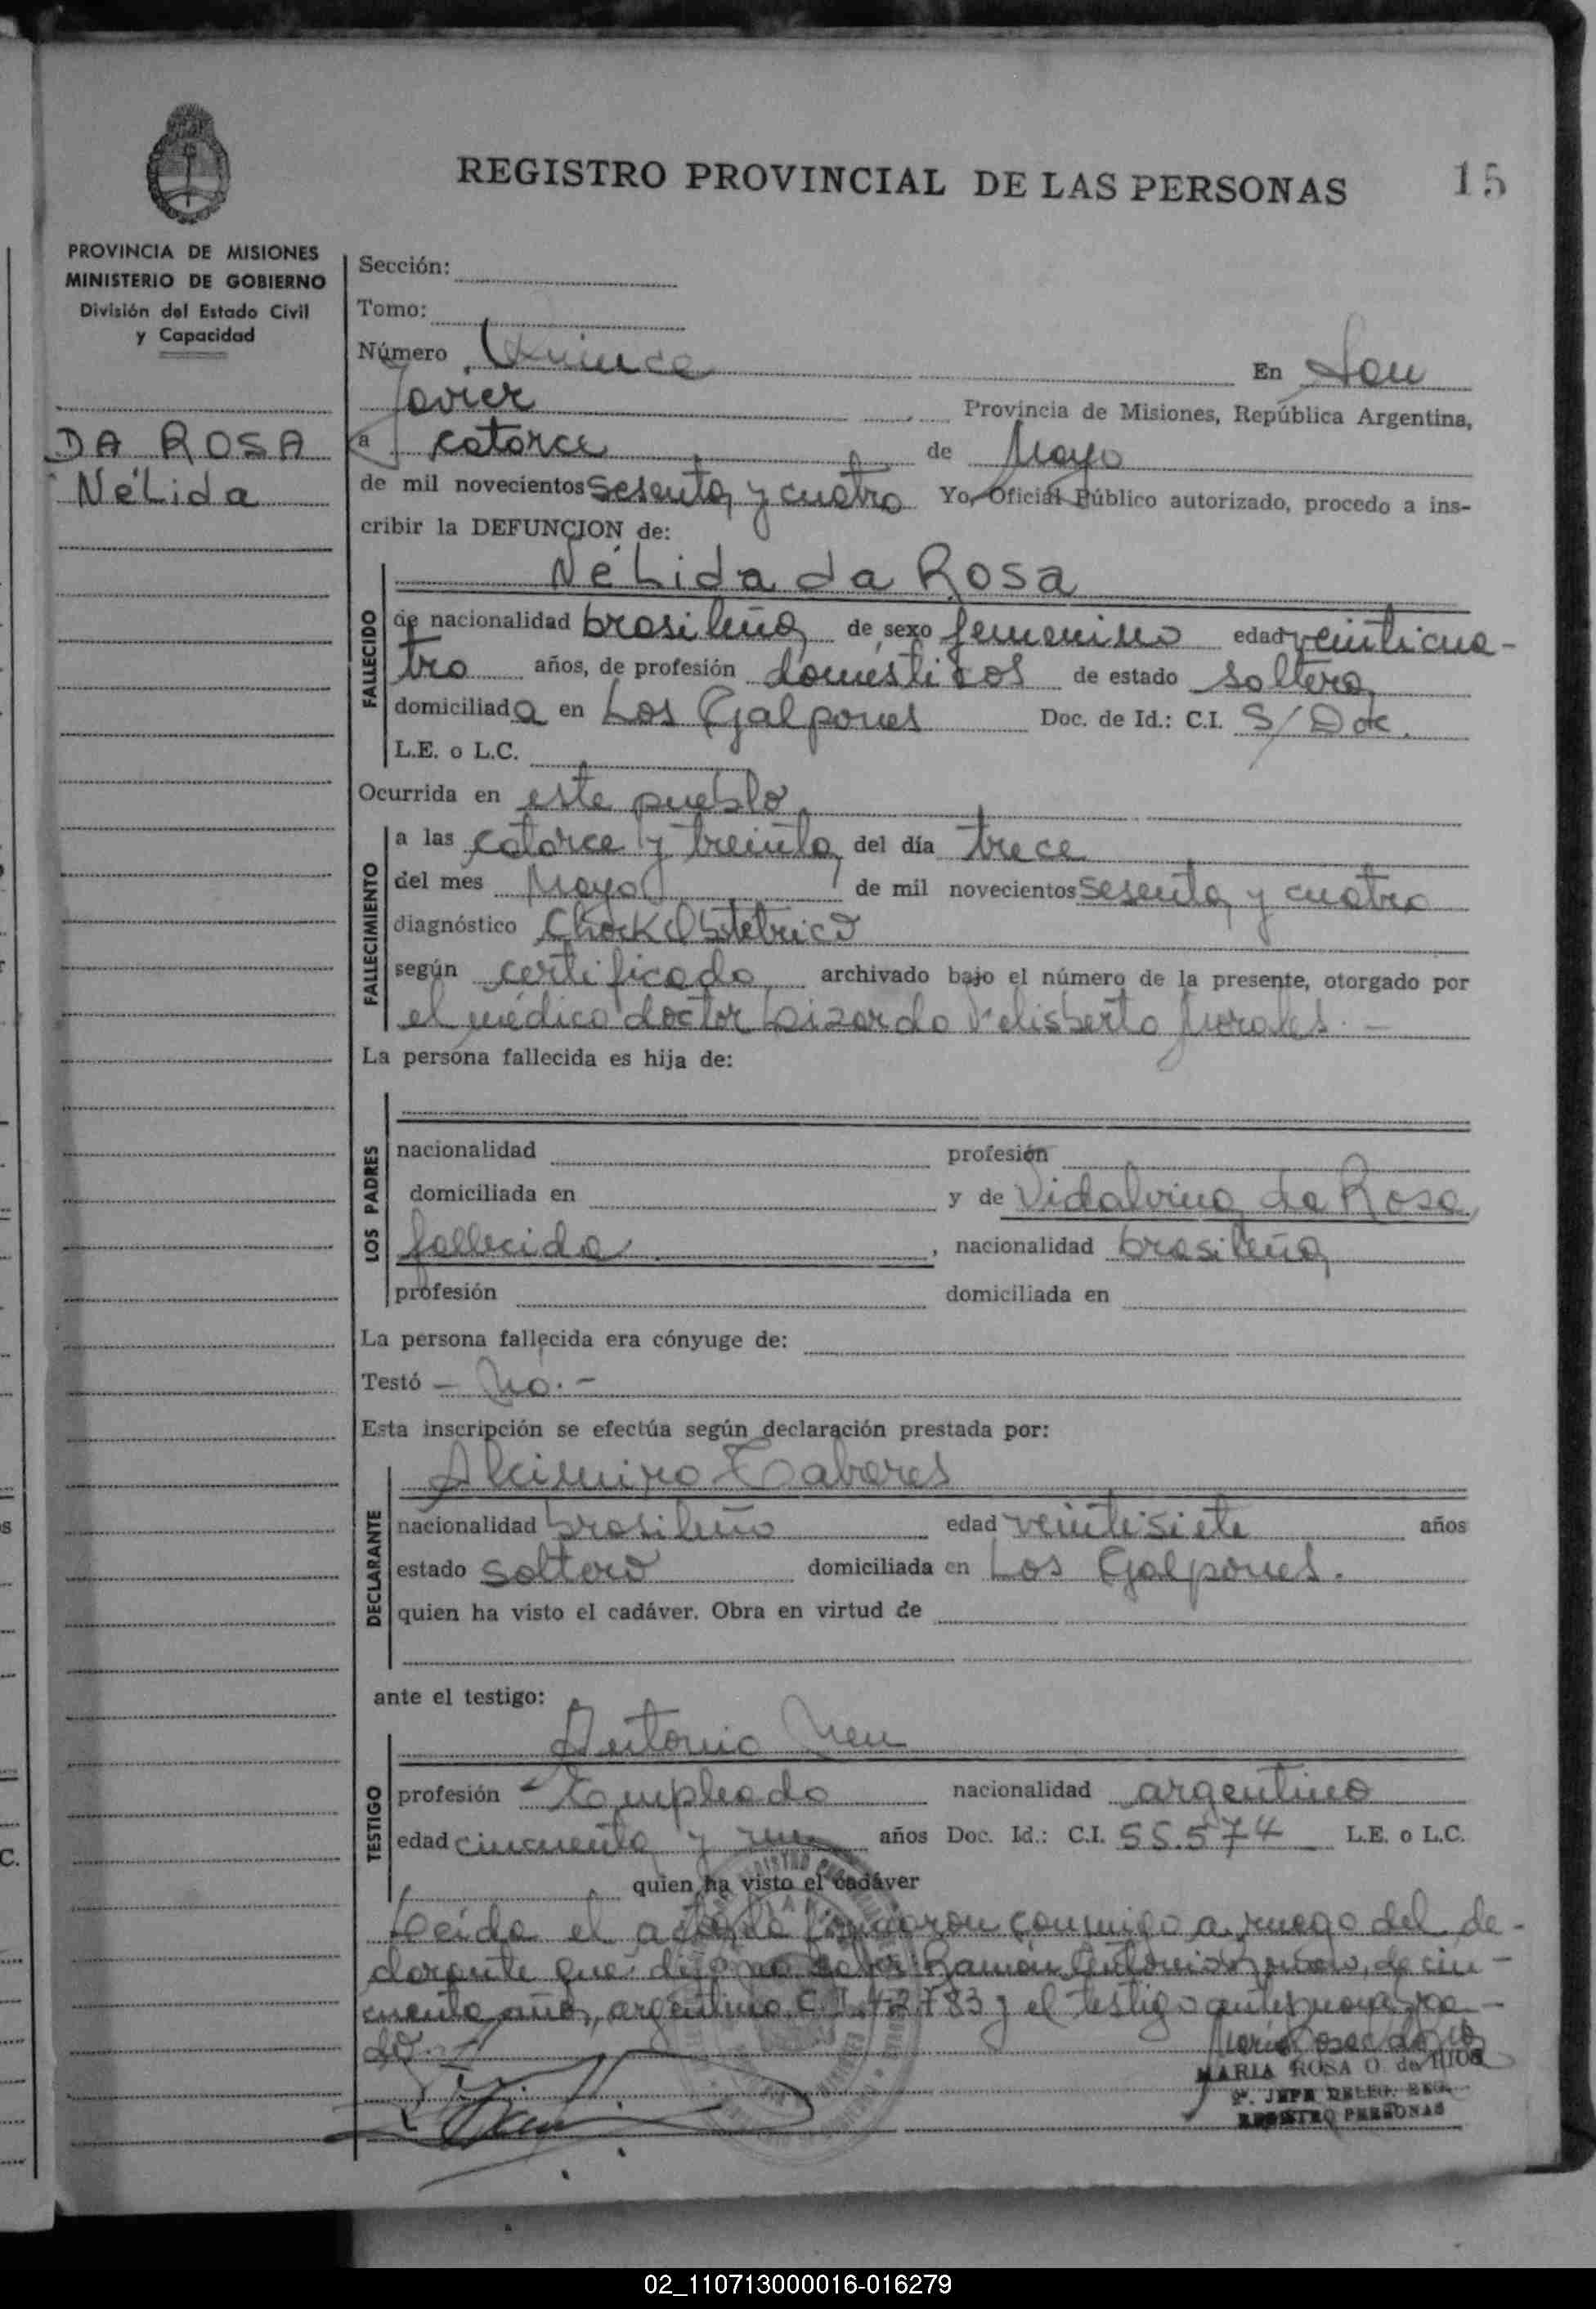 REGISTRO PROVINCIAL DE LAS PERSONAS 15
PROVINCIA DE MISIONES
MINISTERIO DE GOBIERNO
División del Estado Civil
y Capacidad
DA ROSA
Nélida
Sección:
Tomo:
Número Quince En San
Javier Provincia de Misiones, República Argentina,
a catorce de Mayo
de mil novecientos sesenta y cuatro Yo, Oficial Público autorizado, procedo a ins-
cribir la DEFUNCION de:
Nélida da Rosa
FALLECIDO
de nacionalidad brasileña de sexo femenino edad veinticua-
tro años, de profesión domésticos de estado soltera
domiciliada en Los Galpones Doc. de Id.: C.I. S/Doc.
L.E. o L.C.
Ocurrida en este pueblo
FALLECIMIENTO
a las catorce y treinta del día trece
del mes Mayo de mil novecientos sesenta y cuatro
diagnóstico Chock Obstetrico
según certificado archivado bajo el número de la presente, otorgado por
el médico doctor Lizardo Felisberto Morales.-
La persona fallecida es hija de:
LOS PADRES
nacionalidad profesión
domiciliada en y de Vidalvina da Rosa
fallecida, nacionalidad brasileña
profesión domiciliada en
La persona fallecida era cónyuge de:
Testó - No.-
Esta inscripción se efectúa según declaración prestada por:
Alcimiro Tabares
DECLARANTE
nacionalidad brasileño edad veintisiete años
estado soltero domiciliada en Los Galpones.
quien ha visto el cadáver. Obra en virtud de
ante el testigo:
Antonio
TESTIGO
profesión Empleado nacionalidad argentino
edad cincuenta y un años Doc. Id.: C.I. 55.574 L.E. o L.C.
quien ha visto el cadáver
Leída el acta la firmaron conmigo a ruego del de-
clarante que dijo no saber: Ramón Antonio de cin-
cuenta años, argentino, C.I. 42.783 y el testigo antes nombra-
do.-
MARIA ROSA O. de RIOS
2ª. JEFA DELEG. REG.
REGISTRO PERSONAS
02_110713000016-016279